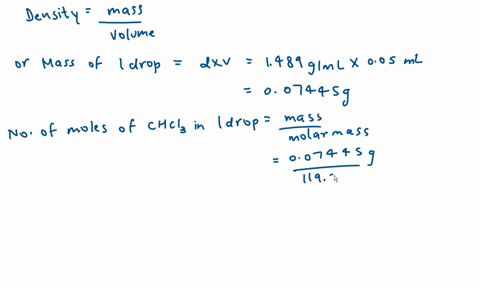 Density = mass / volume
or Mass of 1 drop = d×v = 1.489 g/mL × 0.05 mL
= 0.07445g
No. of moles of CHCl3 in 1 drop = mass / molar mass
= 0.07445 g / 119.